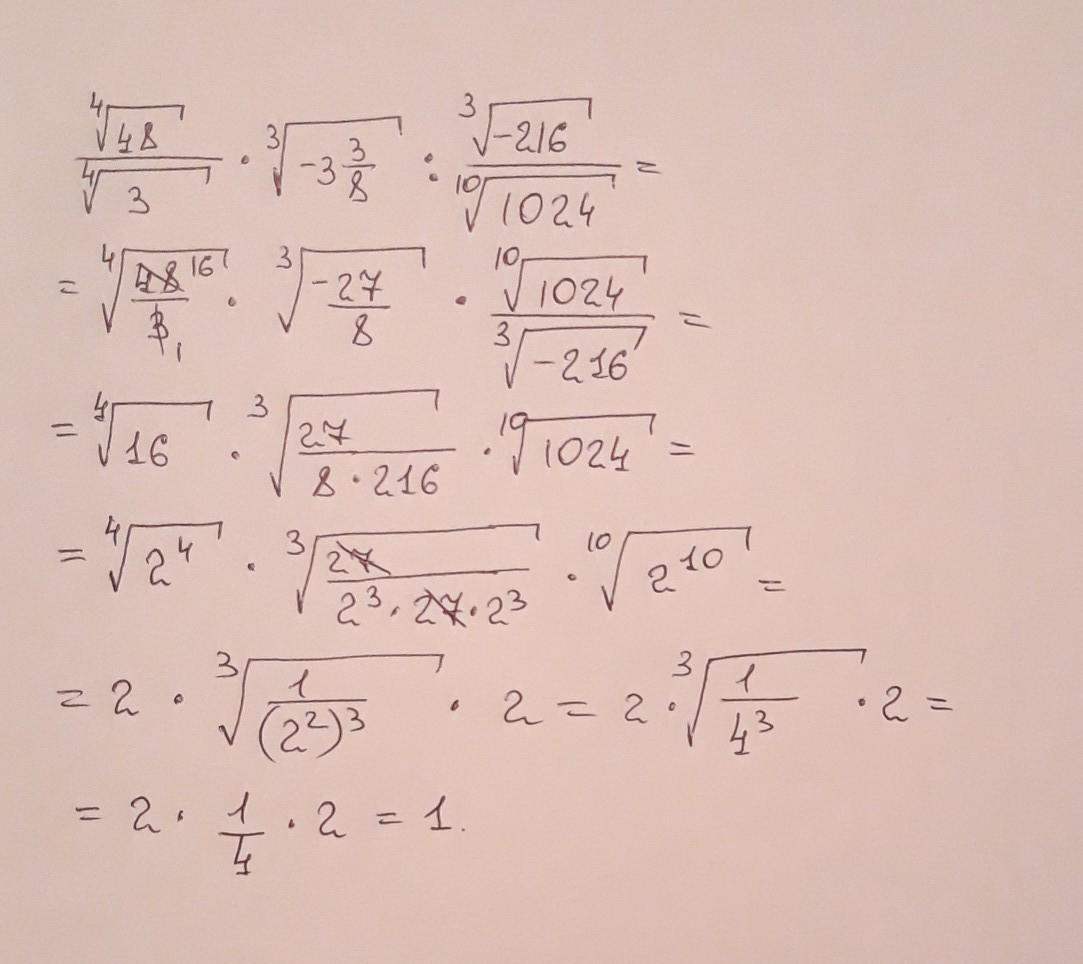 ⁴√48 / ⁴√3 · ³√(-3 3/8) : ³√(-216) / ¹⁰√1024 =
= ⁴√(48 16 / 3 1) · ³√(-27/8) · ¹⁰√1024 / ³√(-216) =
= ⁴√16 · ³√(27 / 8 · 216) · ¹⁰√1024 =
= ⁴√2⁴ · ³√(27 / 2³ · 27 · 2³) · ¹⁰√2¹⁰ =
= 2 · ³√(1 / (2²)³) · 2 = 2 · ³√(1 / 4³) · 2 =
= 2 · 1/4 · 2 = 1.